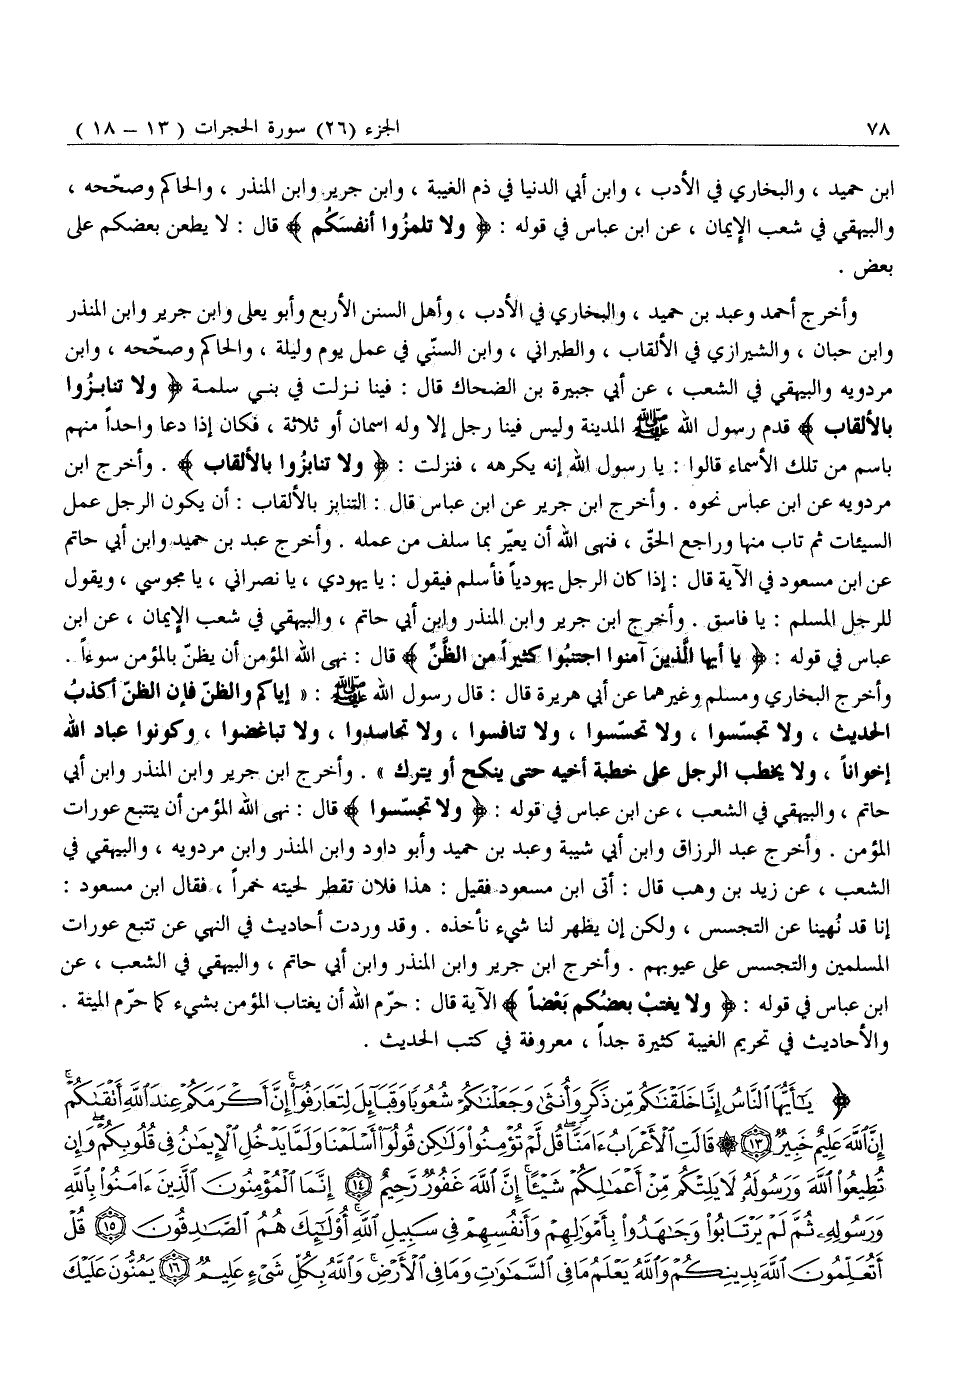 ٧٨ الجزء (٢٦) سورة الحجرات ( ١٣ – ١٨ )
ابن حميد ، والبخاري في الأدب ، وابن أبي الدنيا في ذم الغيبة ، وابن جرير وابن المنذر ، والحاكم وصحّحه ،
والبيهقي في شعب الإيمان ، عن ابن عباس في قوله : ﴿ ولا تلمزُوا أنفسَكُم ﴾ قال : لا يطعن بعضكم على
بعض .
وأخرج أحمد وعبد بن حميد ، والبخاري في الأدب ، وأهل السنن الأربع وأبو يعلى وابن جرير وابن المنذر
وابن حبان ، والشيرازي في الألقاب ، والطبراني ، وابن السنّي في عمل يوم وليلة ، والحاكم وصحّحه ، وابن
مردويه والبيهقي في الشعب ، عن أبي جبيرة بن الضحاك قال : فينا نزلت في بني سلمة ﴿ ولا تنابزُوا
بالألقاب ﴾ قدم رسول الله ﷺ المدينة وليس فينا رجل إلا وله اسمان أو ثلاثة ، فكان إذا دعا واحداً منهم
باسم من تلك الأسماء قالوا : يا رسول الله إنه يكرهه ، فنزلت : ﴿ ولا تنابزُوا بالألقاب ﴾ . وأخرج ابن
مردويه عن ابن عباس نحوه . وأخرج ابن جرير عن ابن عباس قال : التنابز بالألقاب : أن يكون الرجل عمل
السيئات ثم تاب منها وراجع الحقّ ، فنهى الله أن يعيّر بما سلف من عمله . وأخرج عبد بن حميد وابن أبي حاتم
عن ابن مسعود في الآية قال : إذا كان الرجل يهودياً فأسلم فيقول : يا يهودي ، يا نصراني ، يا مجوسي ، ويقول
للرجل المسلم : يا فاسق . وأخرج ابن جرير وابن المنذر وابن أبي حاتم ، والبيهقي في شعب الإيمان ، عن ابن
عباس في قوله : ﴿ يا أيها الَّذينَ آمنوا اجتنبُوا كثيراً من الظَّنِّ ﴾ قال : نهى الله المؤمن أن يظنّ بالمؤمن سوءاً .
وأخرج البخاري ومسلم وغيرهما عن أبي هريرة قال : قال رسول الله ﷺ : « إياكم والظنّ فإن الظنّ أكذبُ
الحديث ، ولا تجسّسوا ، ولا تحسّسوا ، ولا تنافسوا ، ولا تحاسدوا ، ولا تباغضوا ، وكونوا عباد الله
إخواناً ، ولا يخطب الرجل على خطبة أخيه حتى ينكح أو يترك » . وأخرج ابن جرير وابن المنذر وابن أبي
حاتم ، والبيهقي في الشعب ، عن ابن عباس في قوله : ﴿ ولا تجسّسوا ﴾ قال : نهى الله المؤمن أن يتتبع عورات
المؤمن . وأخرج عبد الرزاق وابن أبي شيبة وعبد بن حميد وأبو داود وابن المنذر وابن مردويه ، والبيهقي في
الشعب ، عن زيد بن وهب قال : أتى ابن مسعود فقيل : هذا فلان تقطر لحيته خمراً ، فقال ابن مسعود :
إنا قد نُهينا عن التجسس ، ولكن إن يظهر لنا شيء نأخذه . وقد وردت أحاديث في النهي عن تتبع عورات
المسلمين والتجسس على عيوبهم . وأخرج ابن جرير وابن المنذر وابن أبي حاتم ، والبيهقي في الشعب ، عن
ابن عباس في قوله : ﴿ ولا يغتبْ بعضُكم بَعْضاً ﴾ الآية قال : حرّم الله أن يغتاب المؤمن بشيء كما حرّم الميتة .
والأحاديث في تحريم الغيبة كثيرة جداً ، معروفة في كتب الحديث .
﴿ يَٰٓأَيُّهَا ٱلنَّاسُ إِنَّا خَلَقْنَٰكُم مِّن ذَكَرٍ وَأُنثَىٰ وَجَعَلْنَٰكُمْ شُعُوبًا وَقَبَآئِلَ لِتَعَارَفُوٓا۟ ۚ إِنَّ أَكْرَمَكُمْ عِندَ ٱللَّهِ أَتْقَىٰكُمْ ۚ
إِنَّ ٱللَّهَ عَلِيمٌ خَبِيرٌ ١٣ ۞ قَالَتِ ٱلْأَعْرَابُ ءَامَنَّا ۖ قُل لَّمْ تُؤْمِنُوا۟ وَلَٰكِن قُولُوٓا۟ أَسْلَمْنَا وَلَمَّا يَدْخُلِ ٱلْإِيمَٰنُ فِى قُلُوبِكُمْ ۖ وَإِن
تُطِيعُوا۟ ٱللَّهَ وَرَسُولَهُۥ لَا يَلِتْكُم مِّنْ أَعْمَٰلِكُمْ شَيْـًٔا ۚ إِنَّ ٱللَّهَ غَفُورٌ رَّحِيمٌ ١٤ إِنَّمَا ٱلْمُؤْمِنُونَ ٱلَّذِينَ ءَامَنُوا۟ بِٱللَّهِ
وَرَسُولِهِۦ ثُمَّ لَمْ يَرْتَابُوا۟ وَجَٰهَدُوا۟ بِأَمْوَٰلِهِمْ وَأَنفُسِهِمْ فِى سَبِيلِ ٱللَّهِ ۚ أُو۟لَٰٓئِكَ هُمُ ٱلصَّٰدِقُونَ ١٥ قُلْ
أَتُعَلِّمُونَ ٱللَّهَ بِدِينِكُمْ وَٱللَّهُ يَعْلَمُ مَا فِى ٱلسَّمَٰوَٰتِ وَمَا فِى ٱلْأَرْضِ ۚ وَٱللَّهُ بِكُلِّ شَىْءٍ عَلِيمٌ ١٦ يَمُنُّونَ عَلَيْكَ